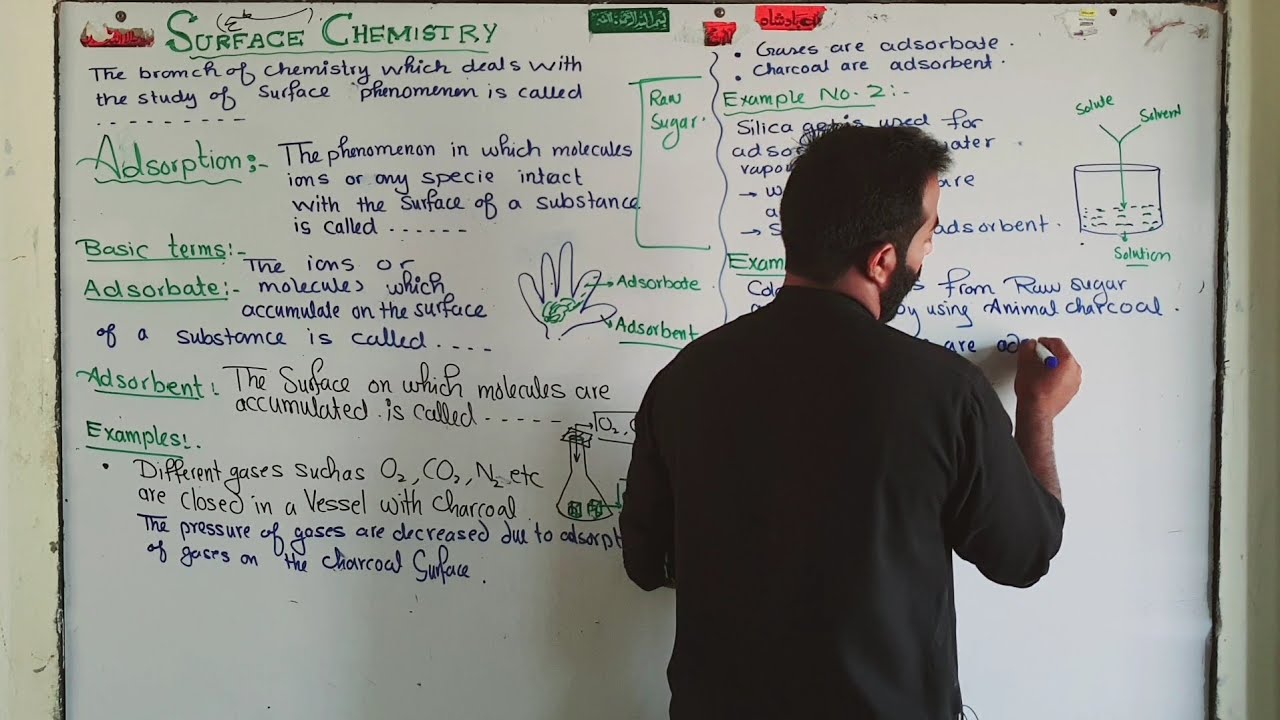 SURFACE CHEMISTRY
The branch of chemistry which deals with
the study of Surface phenomenon is called
- - - - - - - - - -
Adsorption:- The phenomenon in which molecules
ions or any specie intact
with the surface of a substance
is called ......
Basic terms:-
Adsorbate:- The ions or
molecules which
accumulate on the surface
of a substance is called ....
Adsorbate
Adsorbent
Adsorbent: The Surface on which molecules are
accumulated is called - - - - - -
Examples:.
• Different gases suchas O₂, CO₂, N₂ etc
are closed in a Vessel with Charcoal
The pressure of gases are decreased due to adsorpt
of gases on the charcoal Surface.
O₂, C
Raw
Sugar.
• Gases are adsorbate.
• Charcoal are adsorbent.
Example No. 2:-
Silica gel is used for
adsor water
vapou
→ w are
a
→ S adsorbent.
Exam
Colo s from Raw sugar
by using Animal charcoal.
are ad
Solute
Solvent
Solution